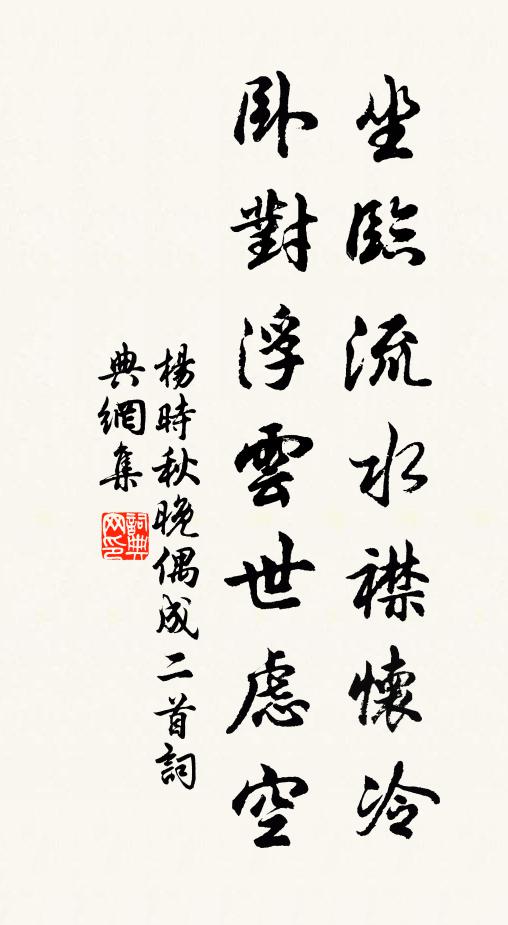 坐臨流水襟懷冷
臥對浮雲世慮空
楊時秋晚偶成二首詞
典網集
詞典
网印